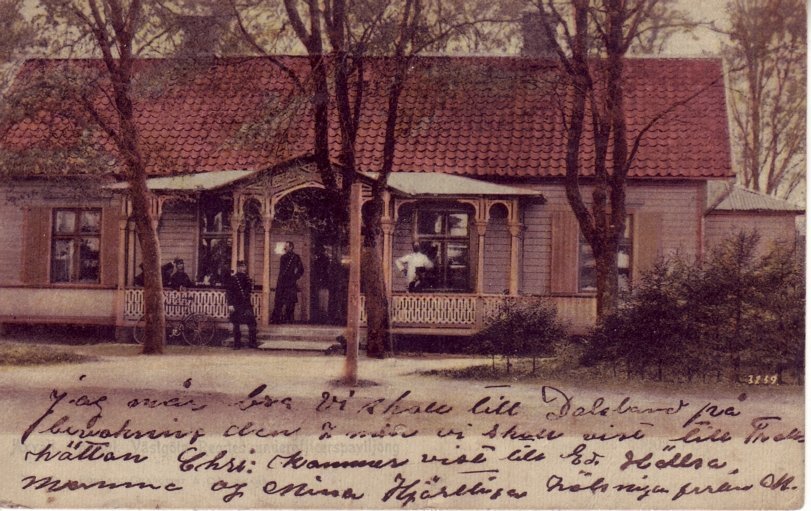 3259
Jag mår bra Vi skall till Dalsland på
bevakning den 7 men vi skall vist till Troll
hättan Chri: kommer vist till Ed. Hälsa
Mamma och Mina Hjärtliga Hälsningar från